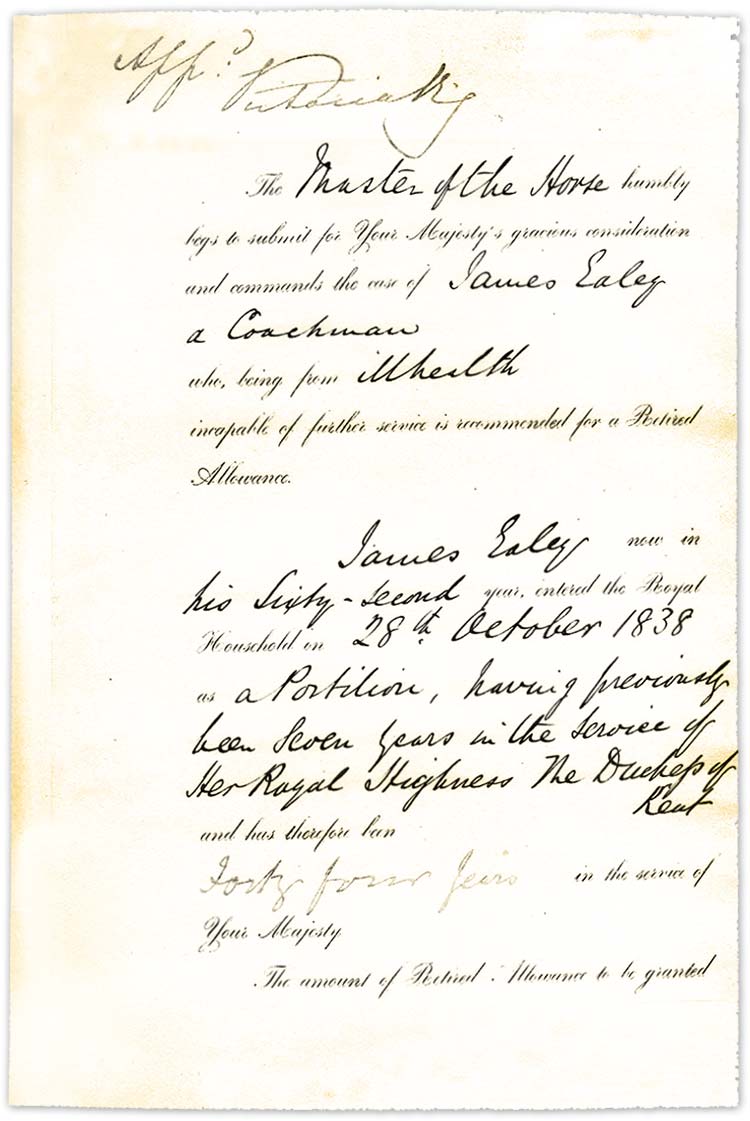 Appd.
Victoria R
The Master of the Horse humbly
begs to submit for Your Majesty's gracious consideration
and commands the case of James Ealey
a Coachman
who, being from illhealth
incapable of further service is recommended for a Retired
Allowance.
James Ealey now in
his Sixty-second year, entered the Royal
Household on 28th. October 1838
as a Postilion, having previously
been Seven years in the Service of
Her Royal Highness The Duchess of
Kent
and has therefore been
Forty four years in the service of
Your Majesty
The amount of Retired Allowance to be granted